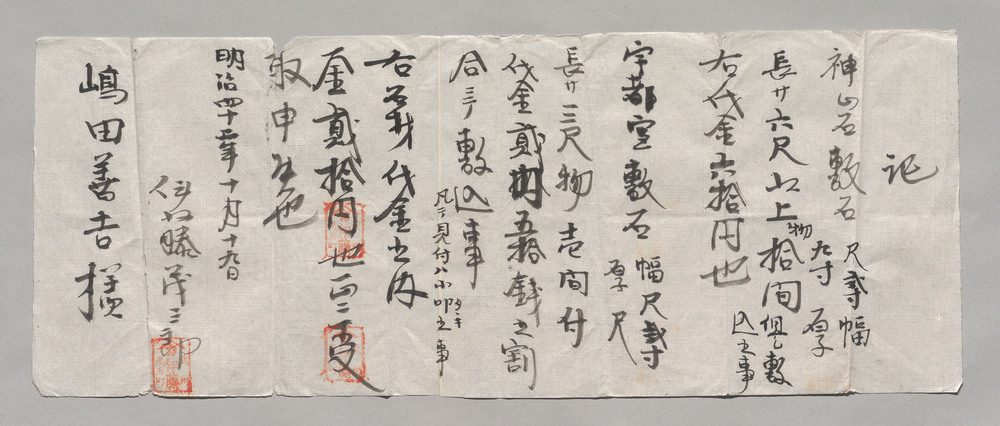 記
神山石敷石 尺弐寸幅
九寸 石子
長サ六尺以上物拾間但し敷
込之事
右代金六拾円也
宇都宮敷石 幅尺弐寸
石子 尺
長サ三尺物壱間付
代金貳円五拾銭之割
合ニテ敷込事
凡テ見付ハ小叩タキ之事
右石材代金之内
金貳拾円也正ニ受
取申候也
明治四十二年十月十九日
伊藤茂三郎
嶋田善吉様